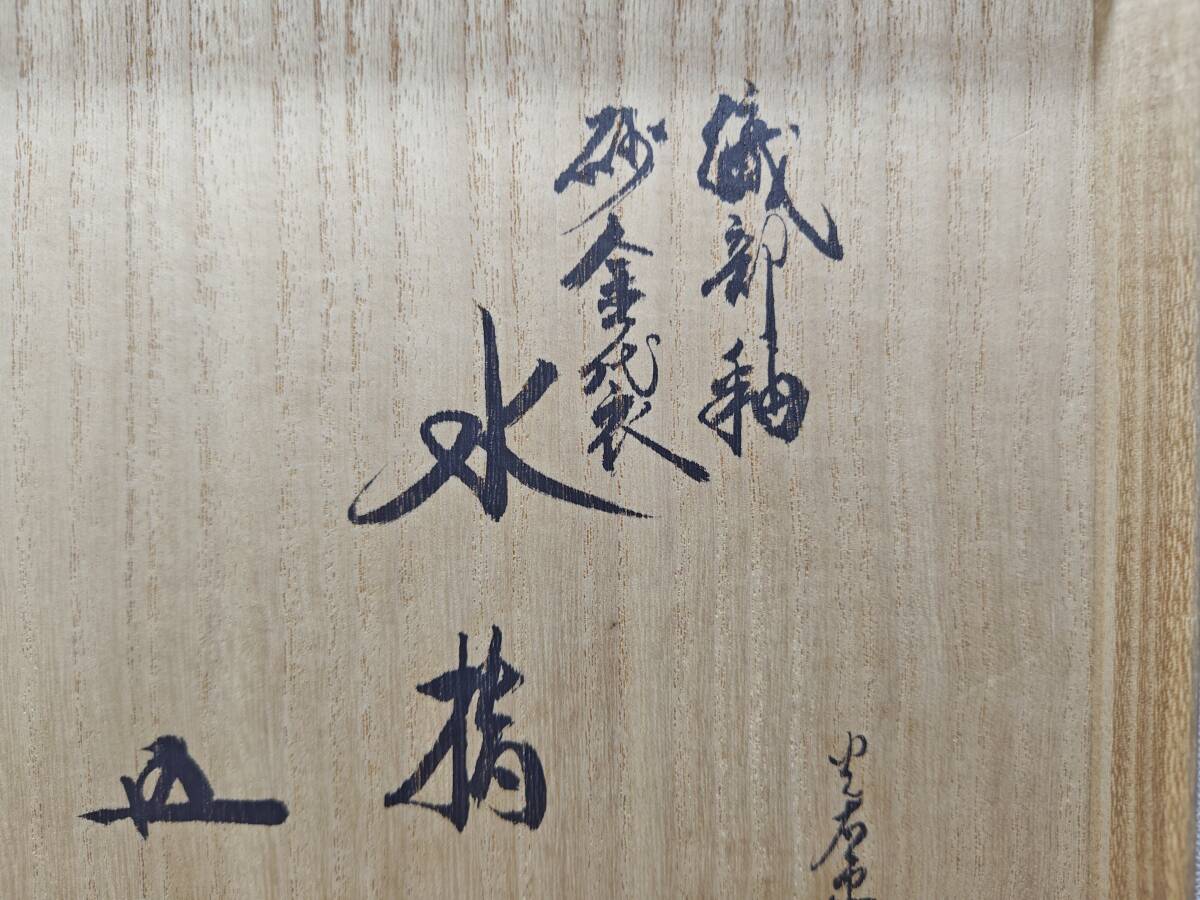 織部釉
砂金袋
水指